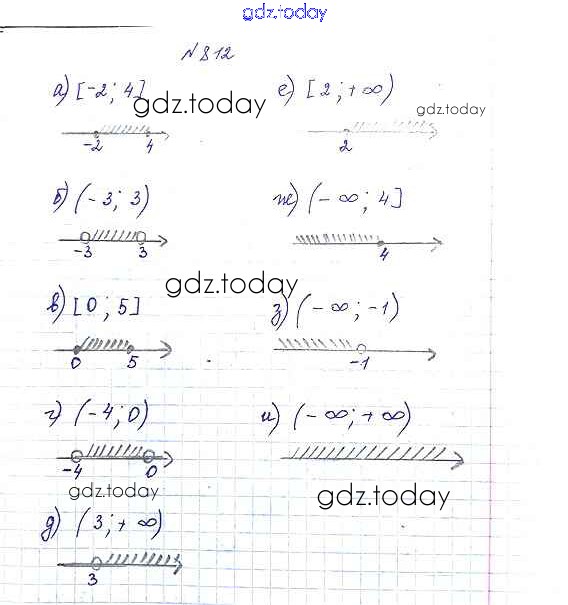 gdz.today
N 812
а) [-2; 4]
gdz.today
-2 4
б) (-3; 3)
-3 3
в) [0; 5]
0 5
г) (-4; 0)
-4 0
gdz.today
д) (3; +∞)
3
е) [2; +∞)
gdz.today
2
ж) (-∞; 4]
4
gdz.today
з) (-∞; -1)
-1
и) (-∞; +∞)
gdz.today